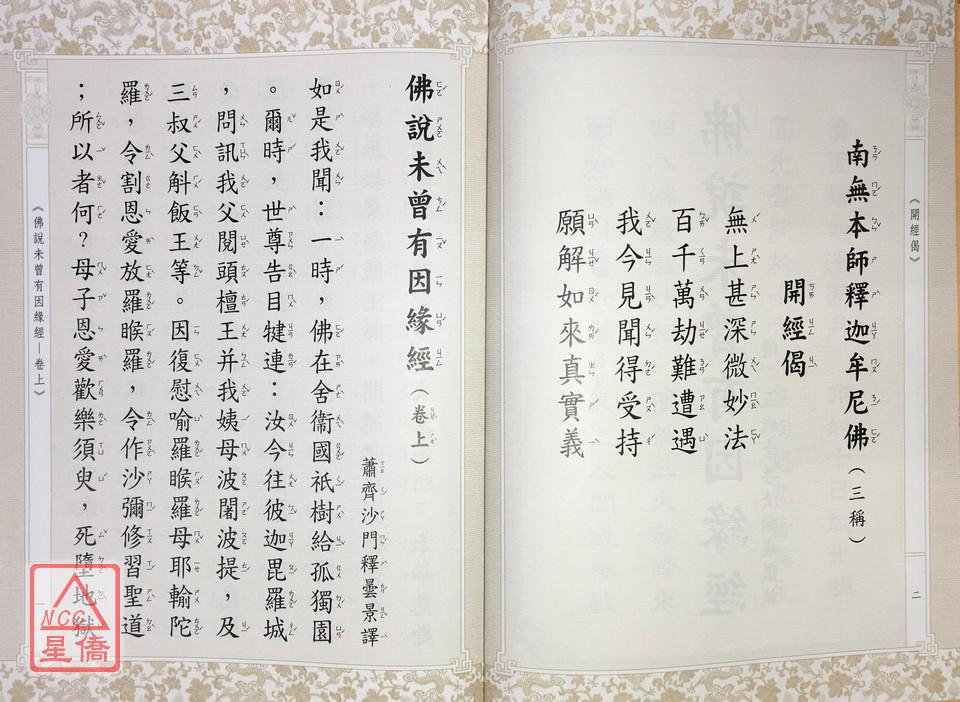 《開經偈》
二
南無本師釋迦牟尼佛(三稱)
開經偈
無上甚深微妙法
百千萬劫難遭遇
我今見聞得受持
願解如來真實義
佛說未曾有因緣經(卷上)
蕭齊沙門釋曇景譯
如是我聞：一時，佛在舍衞國祇樹給孤獨園
。爾時，世尊告目犍連：汝今往彼迦毘羅城
，問訊我父閱頭檀王并我姨母波闍波提，及
三叔父斛飯王等。因復慰喻羅睺羅母耶輸陀
羅，令割恩愛放羅睺羅，令作沙彌修習聖道
；所以者何？母子恩愛歡樂須臾，死墮地獄
《佛說未曾有因緣經－卷上》
一
NCC
星僑